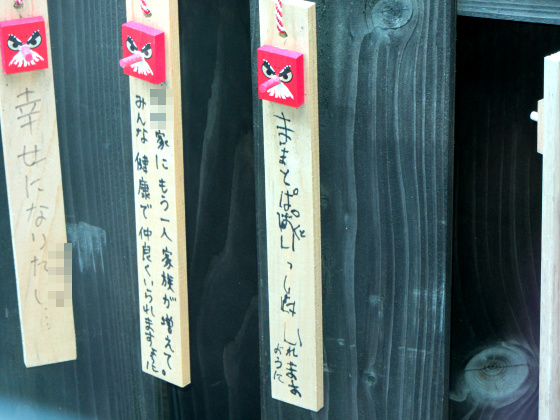 ままとぱぱと
いっしょにいれますように
家にもう一人家族が増えて。
みんな健康で仲良くいられますように
幸せになりたい…